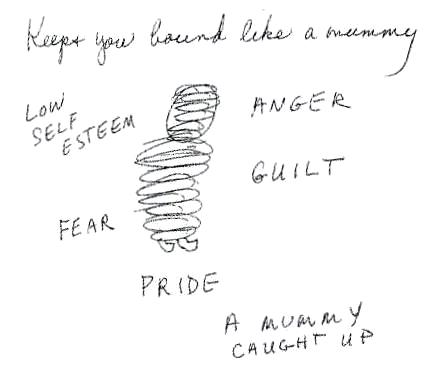 Keeps you bound like a mummy
LOW
SELF
ESTEEM
ANGER
GUILT
FEAR
PRIDE
A MUMMY
CAUGHT UP